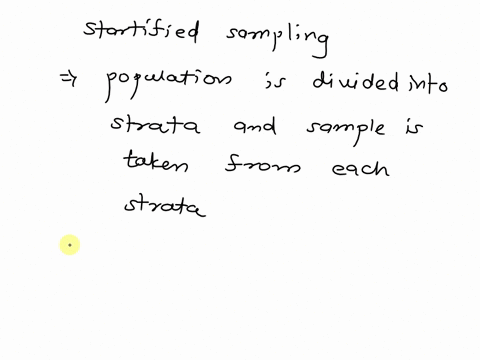 startified sampling
⇒ population is divided into
strata and sample is
taken from each
strata